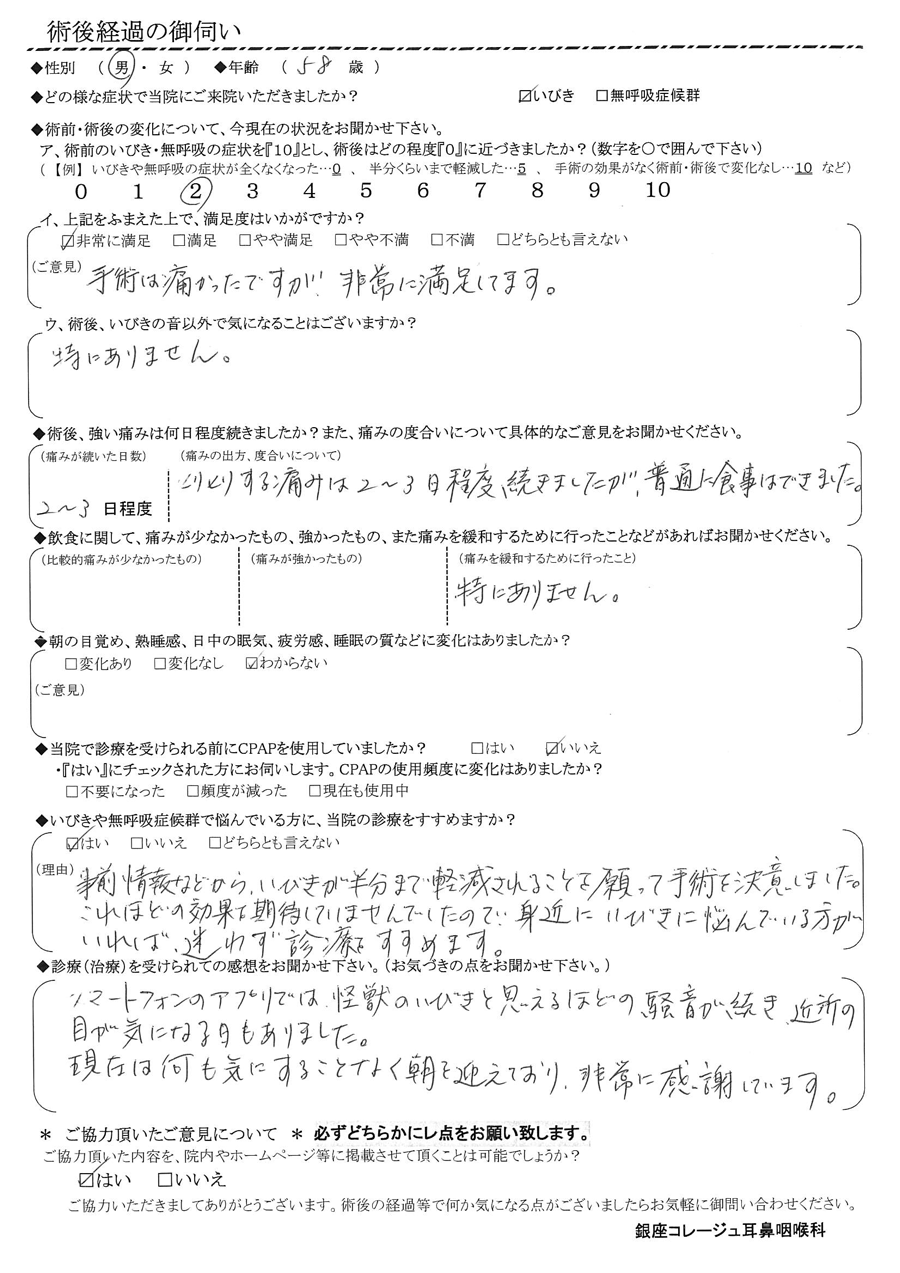 術後経過の御伺い
◆性別 （ 男 ・ 女 ） ◆年齢 （ 58 歳 ）
◆どの様な症状で当院にご来院いただきましたか？ ☑いびき □無呼吸症候群
◆術前・術後の変化について、今現在の状況をお聞かせ下さい。
ア、術前のいびき・無呼吸の症状を『10』とし、術後はどの程度『0』に近づきましたか？（数字を○で囲んで下さい）
（【例】 いびきや無呼吸の症状が全くなくなった…0 、 半分くらいまで軽減した…5 、 手術の効果がなく術前・術後で変化なし…10 など）
0 1 2 3 4 5 6 7 8 9 10
イ、上記をふまえた上で、満足度はいかがですか？
☑非常に満足 □満足 □やや満足 □やや不満 □不満 □どちらとも言えない
（ご意見） 手術は痛かったですが、非常に満足してます。
ウ、術後、いびきの音以外で気になることはございますか？
特にありません。
◆術後、強い痛みは何日程度続きましたか？また、痛みの度合いについて具体的なご意見をお聞かせください。
（痛みが続いた日数） （痛みの出方、度合いについて）
ひりひりする痛みは2～3日程度続きましたが、普通に食事はできました。
2～3 日程度
◆飲食に関して、痛みが少なかったもの、強かったもの、また痛みを緩和するために行ったことなどがあればお聞かせください。
（比較的痛みが少なかったもの） （痛みが強かったもの） （痛みを緩和するために行ったこと）
特にありません。
◆朝の目覚め、熟睡感、日中の眠気、疲労感、睡眠の質などに変化はありましたか？
□変化あり □変化なし ☑わからない
（ご意見）
◆当院で診療を受けられる前にCPAPを使用していましたか？ □はい ☑いいえ
・『はい』にチェックされた方にお伺いします。CPAPの使用頻度に変化はありましたか？
□不要になった □頻度が減った □現在も使用中
◆いびきや無呼吸症候群で悩んでいる方に、当院の診療をすすめますか？
☑はい □いいえ □どちらとも言えない
（理由） 事前情報などから、いびきが半分まで軽減されることを願って手術を決意しました。
これほどの効果を期待していませんでしたので、身近にいびきに悩んでいる方が
いれば、迷わず診療をすすめます。
◆診療（治療）を受けられての感想をお聞かせ下さい。（お気づきの点をお聞かせ下さい。）
スマートフォンのアプリでは、怪獣のいびきと思えるほどの騒音が続き、近所の
目が気になる日もありました。
現在は何も気にすることなく朝を迎えており、非常に感謝しています。
＊ ご協力頂いたご意見について ＊ 必ずどちらかにレ点をお願い致します。
ご協力頂いた内容を、院内やホームページ等に掲載させて頂くことは可能でしょうか？
☑はい □いいえ
ご協力いただきましてありがとうございます。術後の経過等で何か気になる点がございましたらお気軽に御問い合わせください。
銀座コレージュ耳鼻咽喉科